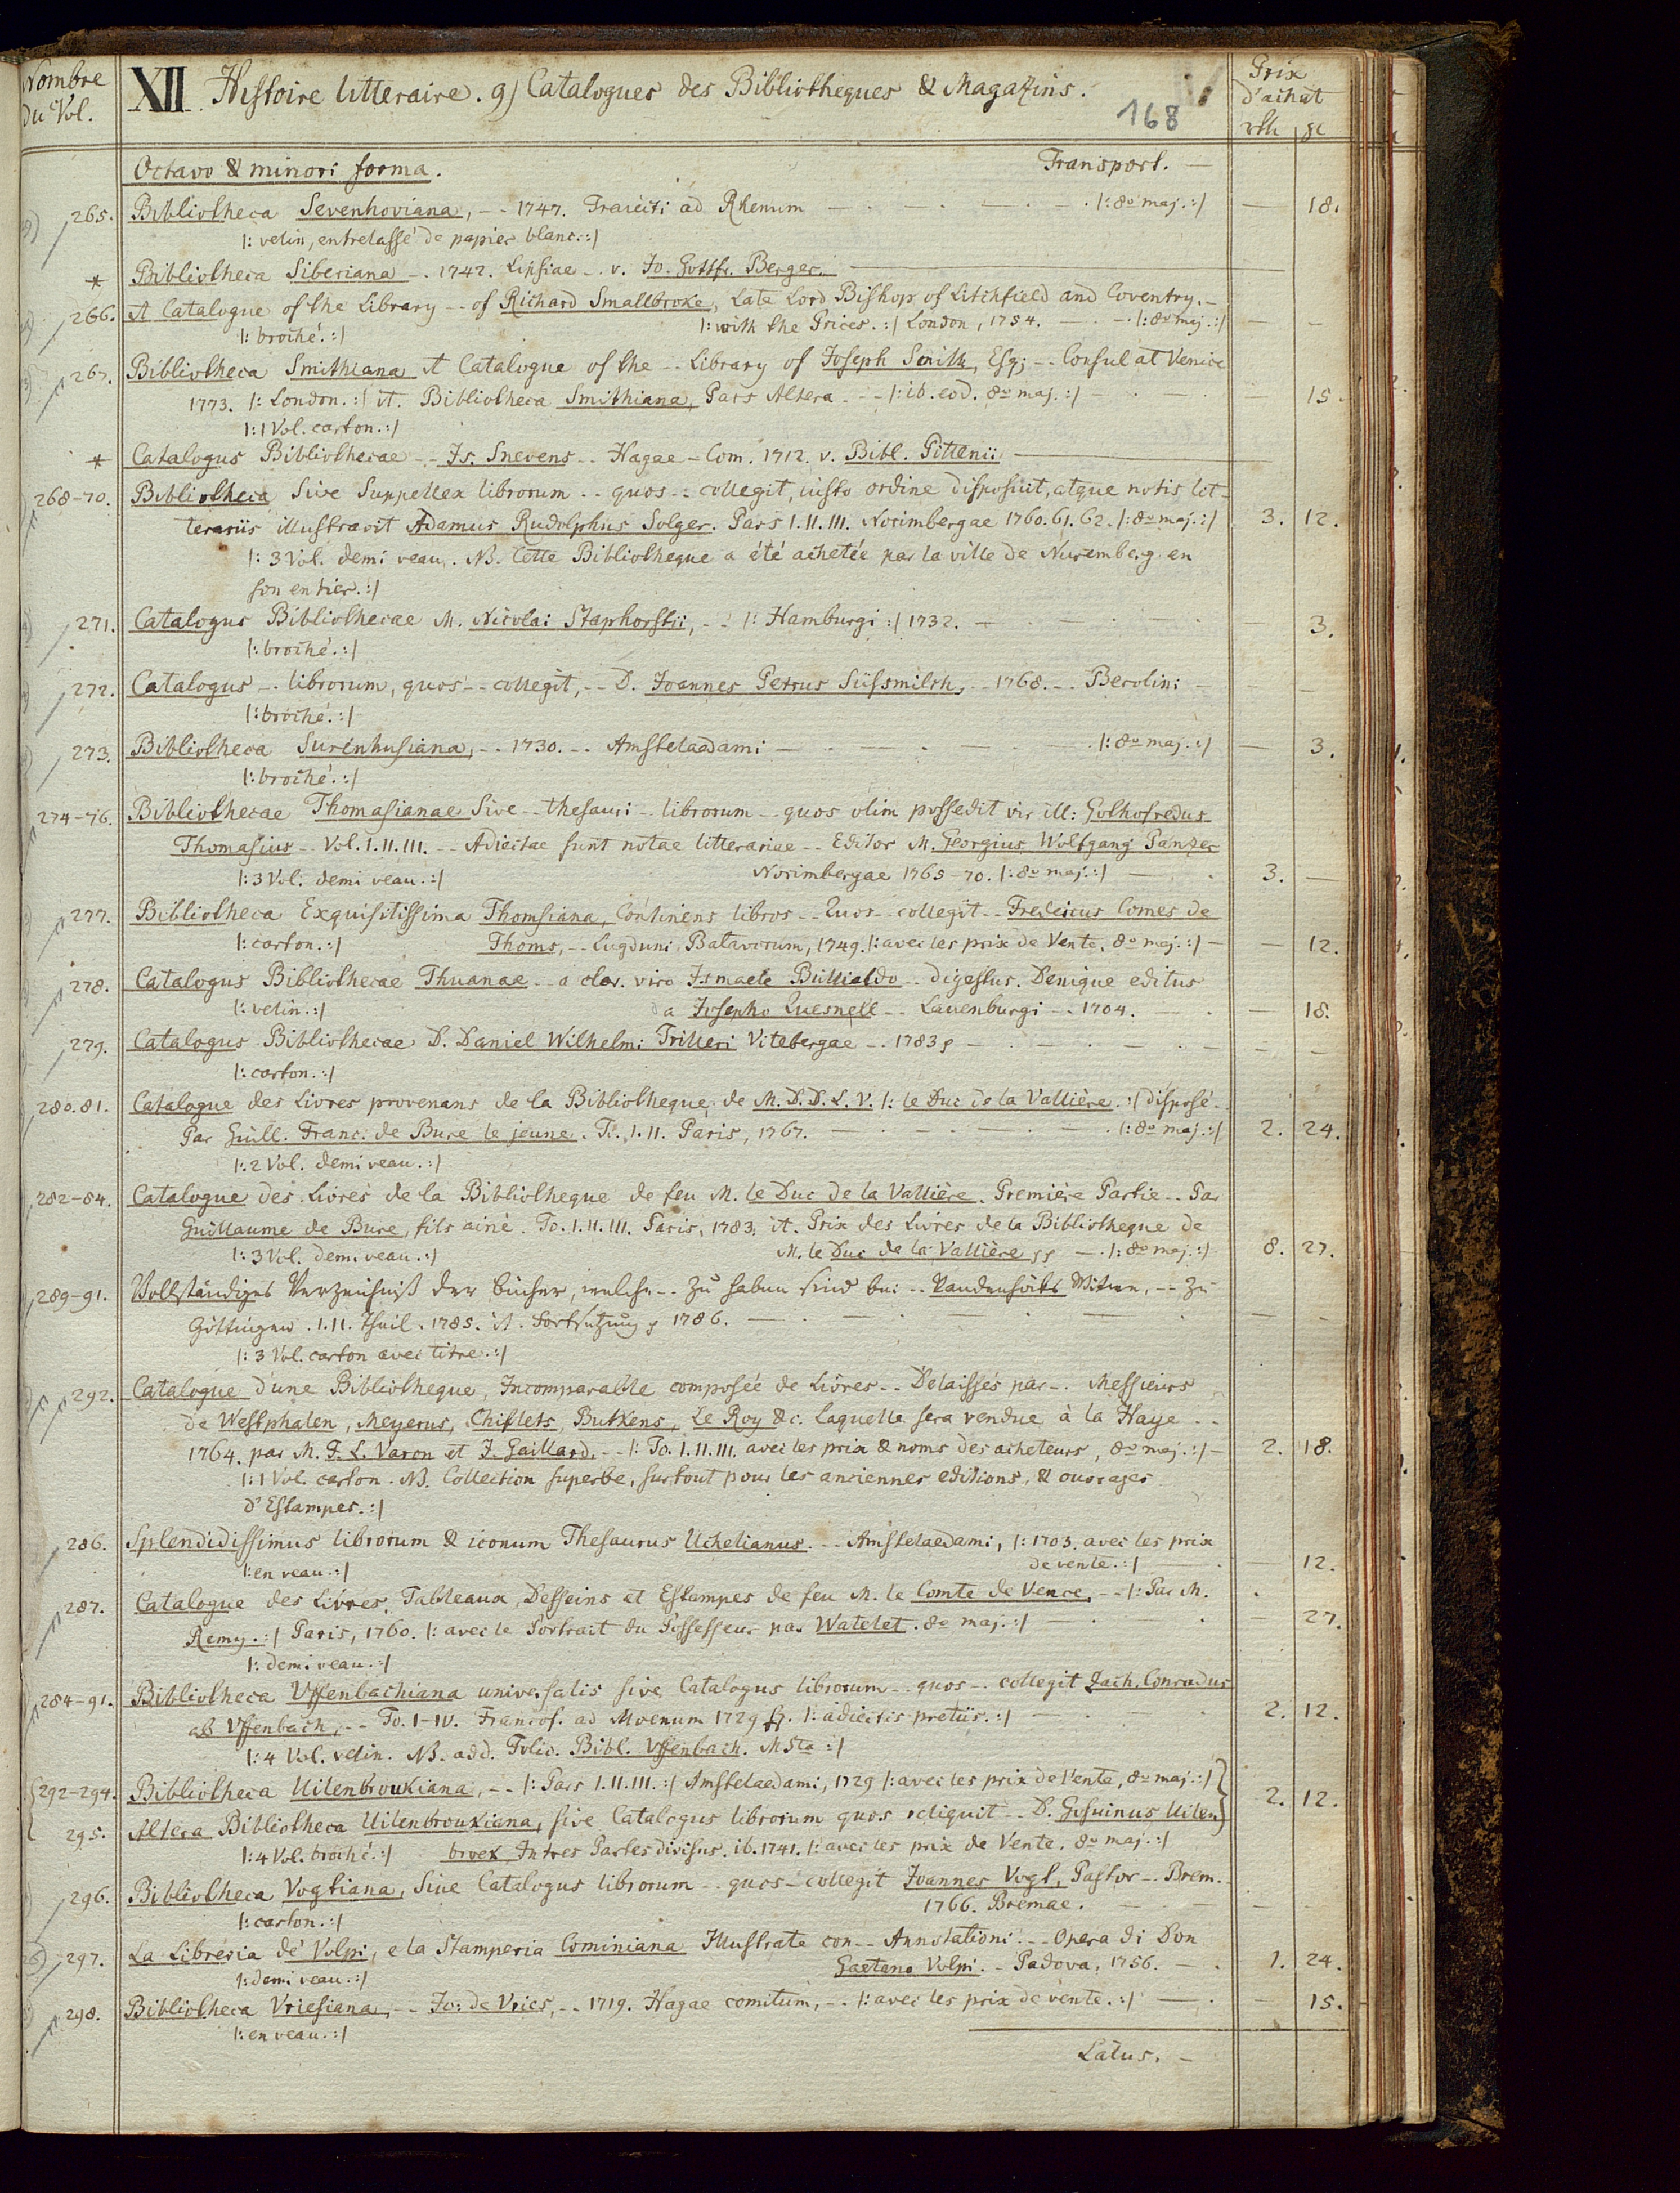 Nombre du Vol. XII Histoire litteraire. g) Catalogues des Bibliotheques & Magazins. 168 Prix d'achat
rth gl
Octavo & minori forma. Transport. —
265. Bibliotheca Sevenhoviana, -- 1747. Traiecti ad Rhenum — |: 8o maj. :| — 18.
|: velin, entrelassé de papier blanc. :|
* Bibliotheca Siberiana -. 1742. Lipsiae -. v. Jo. Gottfr. Berger. —
266. A Catalogue of the Library -- of Richard Smallbroke, Late Lord Bishop of Litchfield and Coventry. -
|: broché. :| |: with the Prices. :| London, 1754. — |: 8o maj. :| — —
267. Bibliotheca Smithiana A Catalogue of the -- Library of Joseph Smith, Esq; -- Consul at Venice
1773. |: London. :| it. Bibliotheca Smithiana, Pars Altera -- |: ib. eod. 8o maj. :| — 15.
|: 1 Vol. carton. :|
* Catalogus Bibliothecae -- Js. Snevens -- Hagae-Com. 1712. v. Bibl. Pittenii —
268-70. Bibliotheca Sive Suppellex librorum -- quos -- collegit, iusto ordine disposuit, atque notis lit-
terariis illustravit Adamus Rudolphus Solger. Pars I. II. III. Norimbergae 1760. 61. 62. |: 8o maj. :| 3. 12.
|: 3 Vol. demi veau. NB. Cette Bibliotheque a été achetée par la ville de Nuremberg en
son entier. :|
271. Catalogus Bibliothecae M. Nicolai Staphorstii, -- |: Hamburgi :| 1732. — — 3.
|: broché. :|
272. Catalogus -- librorum, quos -- collegit, -- D. Joannes Petrus Süssmilch, -- 1768. -- Berolini — —
|: broché. :|
273. Bibliotheca Surenhusiana, -- 1730. -- Amstelaedami — |: 8o maj. :| — 3.
|: broché. :|
274-76. Bibliothecae Thomasianae Sive -- thesauri -- librorum -- quos olim possedit vir ill: Gothofredus
Thomasius -- Vol. I. II. III. -- Adiectae sunt notae litterariae -- Editor M. Georgius Wolfgang Panzer
|: 3 Vol. demi veau. :| Norimbergae 1765-70. |: 8o maj. :| — 3. —
277. Bibliotheca Exquisitissima Thomsiana, Continens libros -- Quos -- collegit -- Fredericus Comes de
|: carton. :| Thoms, -- Lugduni Batavorum, 1749. |: avec les prix de Vente. 8o maj. :| — 12.
278. Catalogus Bibliothecae Thuanae -- a clar. viro Ismaele Bullialdo -- digestus. Denique editus
|: velin. :| a Josepho Quesnell -- Lauenburgi -- 1704. — — 18.
279. Catalogus Bibliothecae D. Daniel Wilhelmi Trilleri Vitebergae -- 1783 — —
|: carton. :|
280. 81. Catalogue des Livres provenans de la Bibliotheque de M. D. D. L. V. |: le Duc de la Vallière. :| disposé -
Par Guill. Franc. de Bure le jeune. T. I. II. Paris, 1767. — |: 8o maj. :| 2. 24.
|: 2 Vol. demi veau. :|
282-84. Catalogue des Livres de la Bibliotheque de feu M. le Duc de la Vallière. Première Partie -- Par
Guillaume de Bure, fils ainé. To. I. II. III. Paris, 1783. it. Prix des Livres de la Bibliotheque de
|: 3 Vol. demi veau. :| M. le Duc de la Vallière — |: 8o maj. :| 8. 27.
289-91. Vollständiges Verzeichniß der Bücher, welche -- zu haben sind bei -- Vandenhöcks Witwe, -- zu
Göttingen. I. II. Theil. 1785. it. Fortsetzung 1786. — —
|: 3 Vol. carton avec titre. :|
292. Catalogue d'une Bibliotheque, Incomparable composée de Livres -- Delaissés par -- Messieurs
de Westphalen, Meyerus, Chiflets, Butkens, Le Roy &c. laquelle sera vendue à la Haye --
1764. par M. F. L. Varon et J. Gaillard. -- |: To. I. II. III. avec les prix & noms des acheteurs, 8o maj. :| — 2. 18.
|: 1 Vol. carton. NB. Collection superbe, surtout pour les anciennes editions, & ouvrages
d'Estampes. :|
286. Splendidissimus librorum & iconum Thesaurus Uchelianus. -- Amstelaedami, |: 1703. avec les prix
|: en veau. :| de vente. :| — 12.
287. Catalogue des Livres, Tableaux, Desseins et Estampes de feu M. le Comte de Vence, -- |: Par M.
Remy. :| Paris, 1760. |: avec le Portrait du Possesseur par Watelet. 8o maj. :| — — 27.
|: demi veau. :|
284-91. Bibliotheca Uffenbachiana universalis sive Catalogus librorum -- quos -- collegit Zach. Conradus
ab Uffenbach, -- To. I-IV. Francof. ad Moenum 1729 sq. |: adiectis pretiis. :| — 2. 12.
|: 4 Vol. velin. NB. add. Folio. Bibl. Uffenbach. MSta :|
292-294. Bibliotheca Uilenbroukiana, -- |: Pars I. II. III. :| Amstelaedami, 1729 |: avec les prix de Vente, 8o maj. :|
2. 12.
295. Altera Bibliotheca Uilenbroukiana, sive Catalogus librorum quos reliquit -- D. Gosuinus Uilen
|: 4 Vol. broché. :| broek, In tres Partes divisus. ib. 1741. |: avec les prix de Vente. 8o maj. :|
296. Bibliotheca Vogtiana, Sive Catalogus librorum -- quos -- collegit Joannes Vogt, Pastor -- Brem.
|: carton. :| 1766. Bremae. — — —
297. La Libreria de' Volpi, e la Stamperia Cominiana Illustrate con -- Annotationi. -- Opera di Don
|: demi veau. :| Gaetano Volpi. -- Padova, 1756. — 1. 24.
298. Bibliotheca Vriesiana, -- Jo: de Vries, -- 1719. Hagae comitum, -- |: avec les prix de vente. :| — — 15.
|: en veau. :|
Latus. —